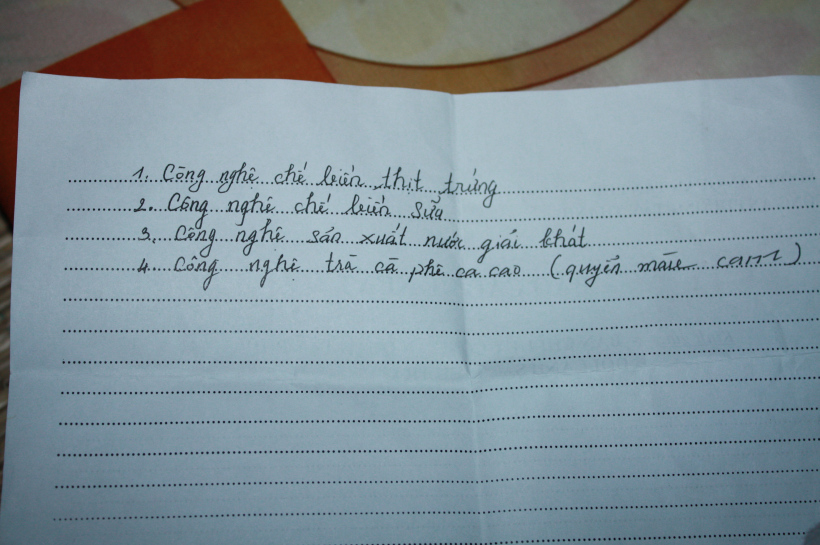 1. Công nghệ chế biến thịt trứng
2. Công nghệ chế biến sữa
3. Công nghệ sản xuất nước giải khát
4. Công nghệ trà cà phê ca cao (quyển màu cam)